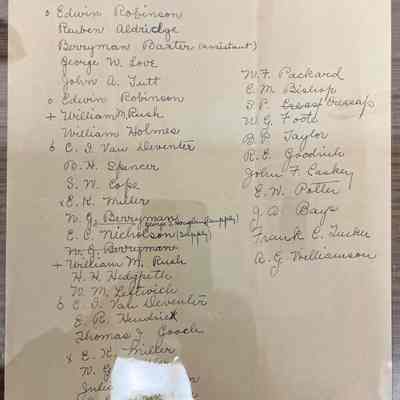 o Edwin Robinson
Reuben Aldridge
Berryman Baxter (assistant)
George W. Love
John A. Tutt
o Edwin Robinson
+ William M. Rush
William Holmes
o C. I. Van Deventer
B. H. Spencer
S. W. Cope
x E. K. Miller
W. G. Berryman
George J. (supply)
E. C. Nicholson (supply)
W. G. Berryman
+ William M. Rush
H. H. Hedgpeth
W. M. Leftwich
o C. I. Van Deventer
E. R. Hendrix
Thomas J. Gooch
x E. K. Miller
W. G.
W. F. Packard
E. M. Bishop
S. P. Cresap
W. G. Foote
B. P. Taylor
R. E. Goodrich
John F. Caskey
E. W. Potter
J. A. Bays
Frank C. Tucker
A. G. Williamson